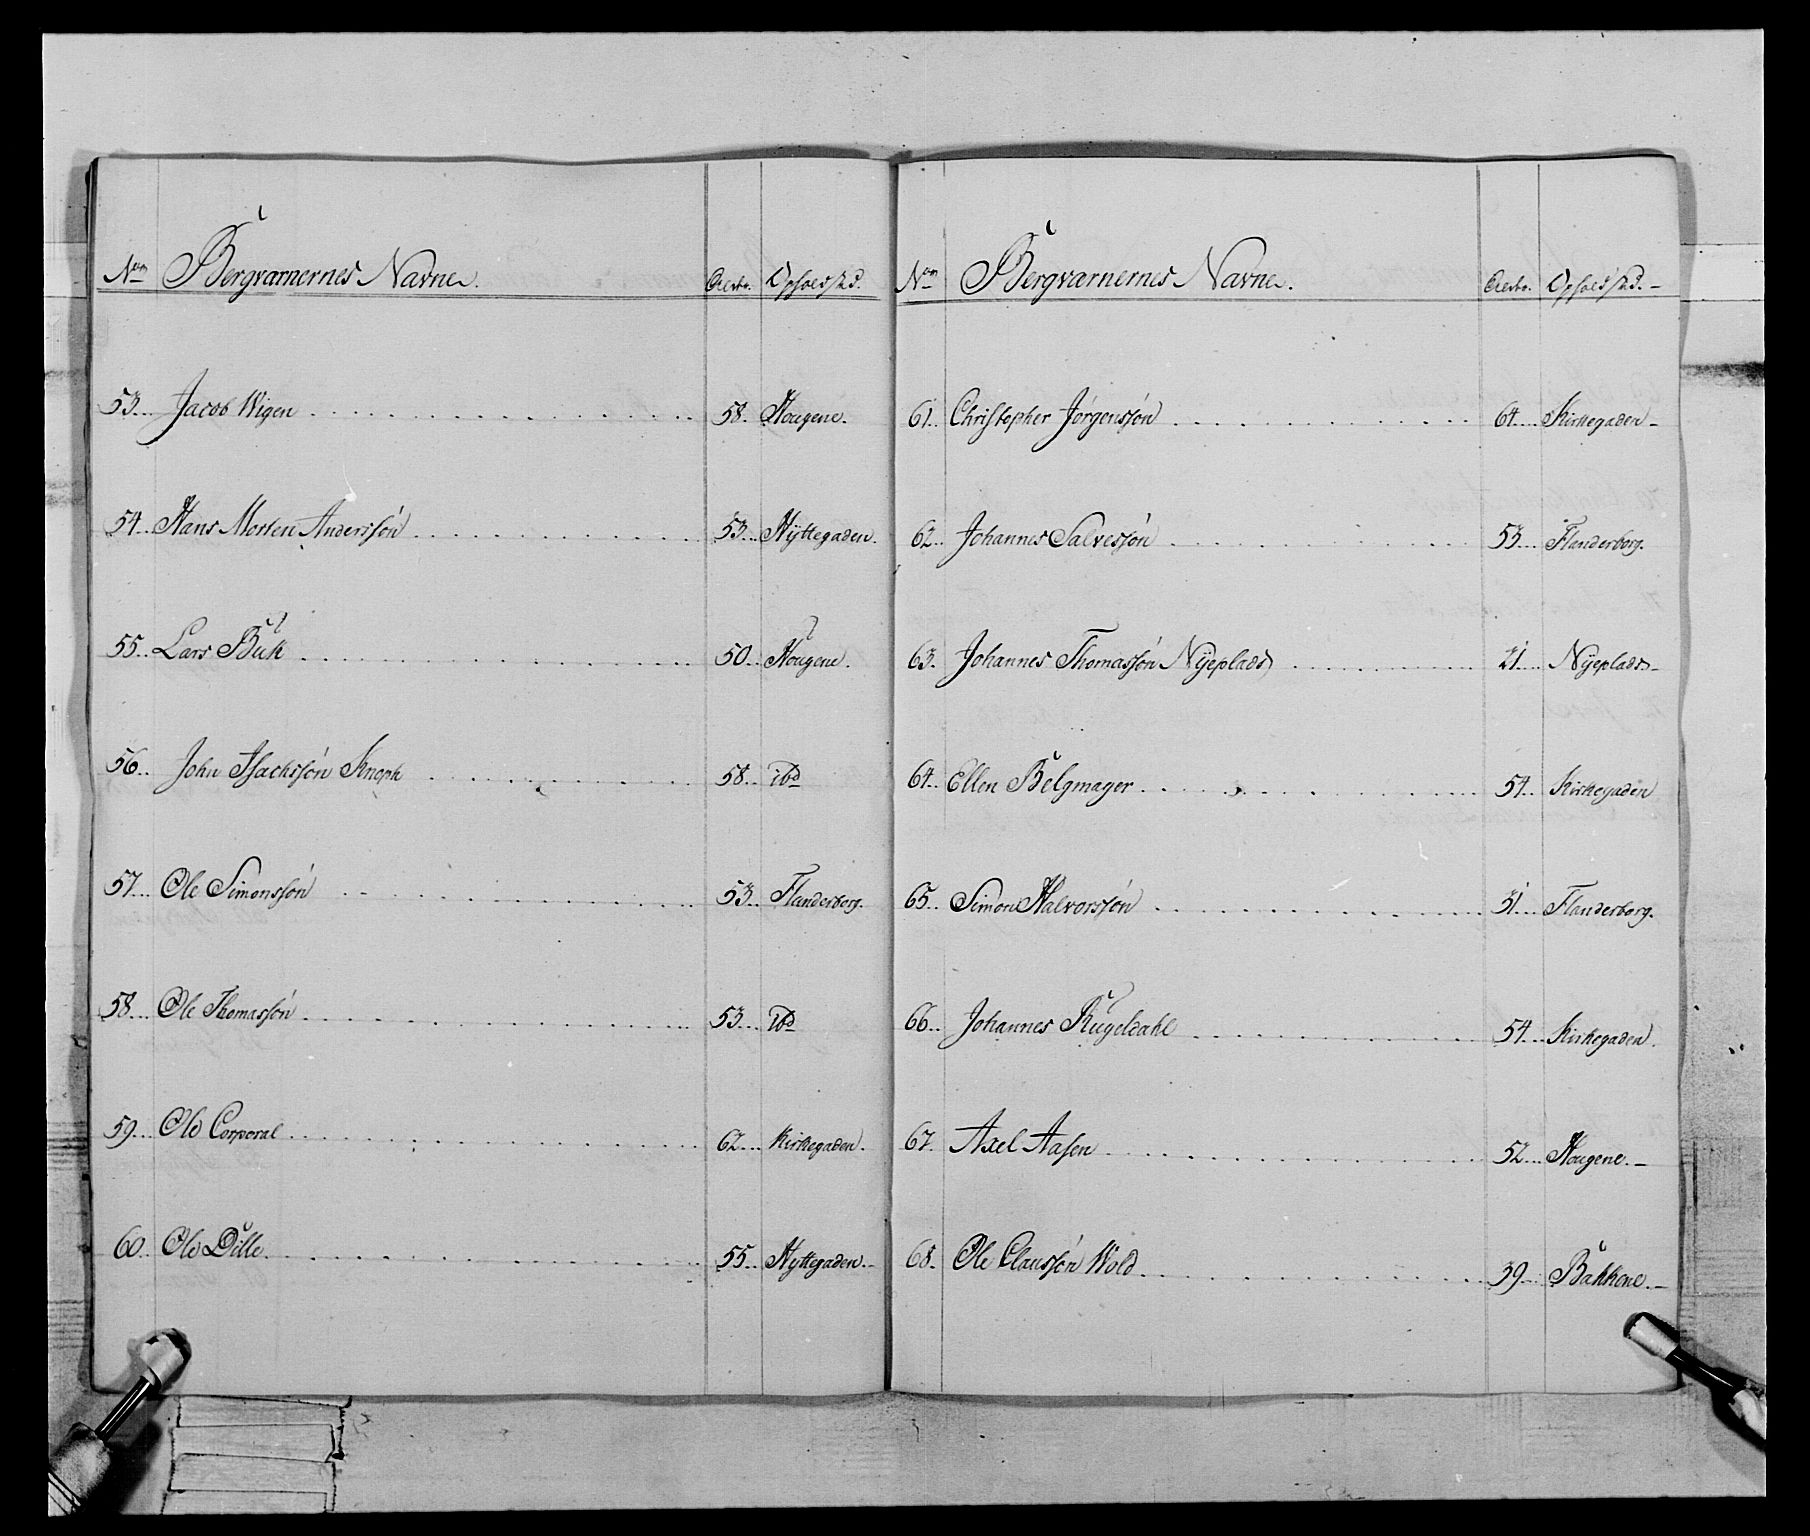 Num Bergværnernes Navne. Alder. Opholdstd.
53. Jacob Wigen 58. Hougene.
54. Hans Morten Anderssón 53. Hÿttegaden.
55. Lars Buk 50. Hougene.
56. John Isachssón Knoph 58. ibd
57. Ole Simonssón 53. Flanderborg.
58. Ole Thomassón 53. ibd
59. Ole Corporal 62. Kirkegaden.
60. Ole Dille. 55. Hyttegaden.
Num Bergværnernes Navne. Alder. Opholdstd.
61. Christopher Jórgenssón 64. Kirkegaden
62. Johannes Salvessón 53. Flanderborg.
63. Johannes Thomassón Nÿeplads 21. Nÿeplads
64. Ellen Belgmager 54. Kirkegaden
65. Simon Halvorssón 31. Flanderborg.
66. Johannes Kugeldahl 54. Kirkegaden.
67. Axel Aasen 52. Hougene.
68. Ole Claussón Wold 39. Bakkene.